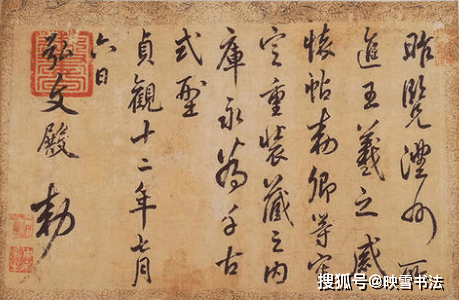 昨覽澧州所
進王羲之感
懐帖勅卿等審
定重裝藏之内
庫永為千古
式型
貞觀十二年七月
六日
弘文殿 勅
搜狐号@映雪书法